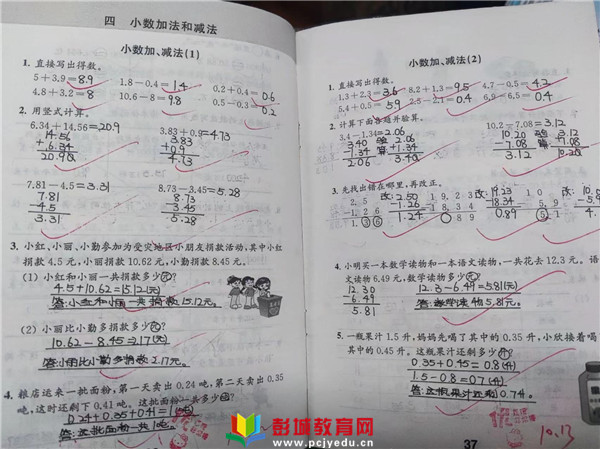 四 小数加法和减法
小数加、减法(1)
1. 直接写出得数。
5+3.9=8.9 1.8-0.4=1.4 0.2+0.4=0.6
4.8+3.2=8 10.6-8=9.8 0.5-0.3=0.2
2. 用竖式计算。
6.34+14.56=20.9 3.83+0.9=4.73
14.56 3.83
+6.34 +0.9
20.90 4.73
7.81-4.5=3.31 8.73-3.45=5.28
7.81 8.73
4.5 3.45
3.31 5.28
3. 小红、小丽、小勤参加为受灾地区小朋友捐款活动,其中小红
捐款 4.5 元,小丽捐款 10.62 元,小勤捐款 8.45 元。
(1) 小红和小丽一共捐款多少元?
4.5+10.62=15.12(元)
答:小红和小丽一共捐款15.12元。
(2) 小丽比小勤多捐款多少元?
10.62-8.45=2.17(元)
答:小丽比小勤多捐款2.17元。
4. 粮店运来一批面粉,第一天卖出 0.24 吨,第二天卖出 0.35
吨,这时还剩下 0.41 吨。这批面粉一共多少吨?
0.24+0.35+0.41=1(吨)
答:这批面粉一共1吨。
小数加、减法(2)
1. 直接写出得数。
1.3+2.3=3.6 8.2+1.3=9.5 4.7-0.5=4.2
5.4+0.5=5.9 2.5-2.1=0.4 6.9-6.5=0.4
2. 计算下面各题并验算。
3.4-1.34=2.06 10.2-7.08=3.12
3.40 验 2.06 10.20 验 3.12
-1.34 算 +1.34 -7.08 算 +7.08
2.06 3.40 3.12 10.20
3. 先找出错在哪里,再改正。
4. 小明买一本数学读物和一本语文读物,一共花去 12.3 元。语
文读物 6.49 元,数学读物多少元?
12.30
-6.49
5.81
12.3-6.49=5.81(元)
答:数学读物5.81元。
5. 一瓶果汁 1.5 升,妈妈先喝了其中的 0.35 升,小欣接着喝
其中的 0.45 升。这瓶果汁还剩多少升?
0.35+0.45=0.8(升)
1.5-0.8=0.7(升)
答:这瓶果汁还剩0.7升。
37
10.13
彭城教育网
www.pcjyedu.cn